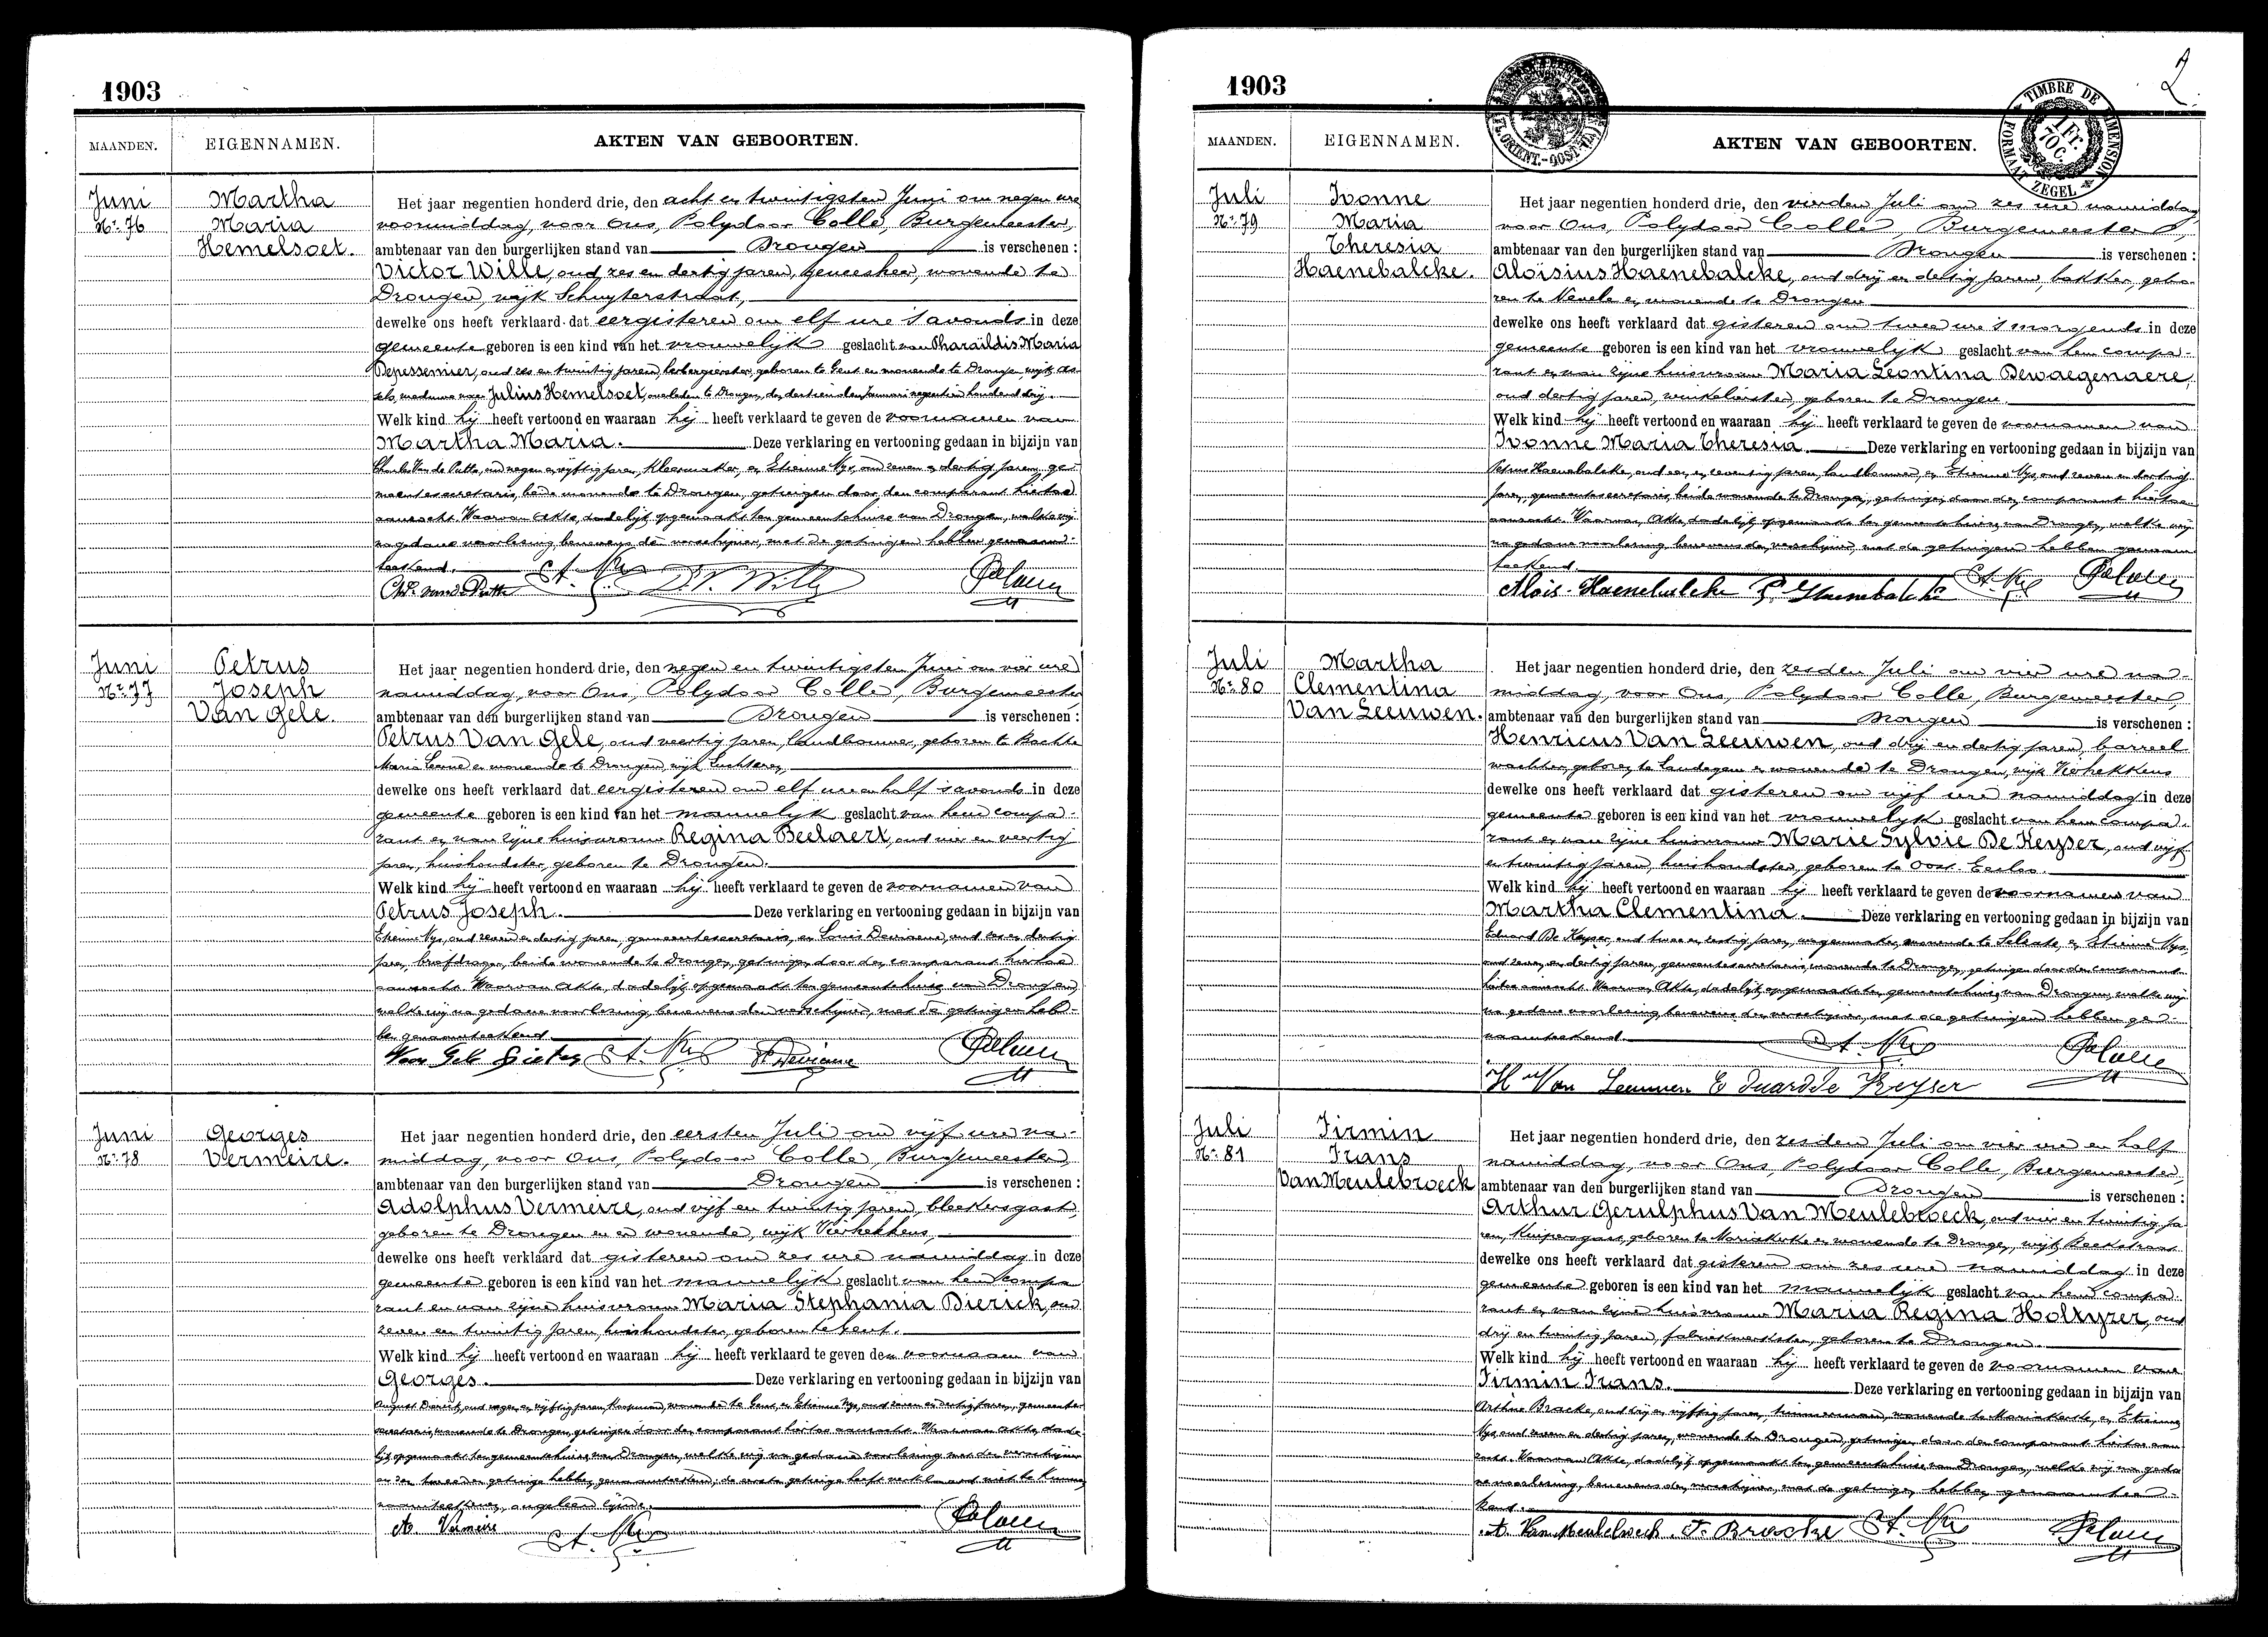 1903
MAANDEN. EIGENNAMEN. AKTEN VAN GEBOORTEN.
Juni Nr 76
Martha
Maria
Hemelsoet.
Het jaar negentien honderd drie, den acht en twintigsten Juni om negen ure
voormiddag, voor Ons, Polydoor Colle, Burgemeester,
ambtenaar van den burgerlijken stand van Drongen is verschenen :
Victor Wille, oud zes en dertig jaren, geneesheer, wonende te
Drongen, wijk Schuyterstraat,
dewelke ons heeft verklaard dat eergisteren om elf ure 's avonds in deze
gemeente geboren is een kind van het vrouwelijk geslacht van Pharaïldis Maria
Depessemier, oud zes en twintig jaren, herbergierster, geboren te Gent en wonende te Drongen wijk
weduwe van Julius Hemelsoet, overleden te Drongen, den dertienden Januari negentien honderd drij.
Welk kind hij heeft vertoond en waaraan hij heeft verklaard te geven de voornamen van
Martha Maria. Deze verklaring en vertooning gedaan in bijzijn van
Charles Van de Putte, oud negen en vijftig jaren, kleermaker, en Etienne Nys, oud zeven en dertig jaren, ge-
meentesecretaris, beide wonende te Drongen, getuigen door den comparant hiertoe
aanzocht. Waarvan Akte, dadelijk opgemaakt ten gemeentehuize van Drongen, welke wij
na gedane voorlezing, benevens de verschijner, met de getuigen hebben genaam-
teekend.
Ch. van de Putte Et. Nys Dr V. Wille P. Colle
Juni Nr 77
Petrus
Joseph
Van Gele.
Het jaar negentien honderd drie, den negen en twintigsten Juni om vier ure
namiddag, voor Ons, Polydoor Colle, Burgemeester
ambtenaar van den burgerlijken stand van Drongen is verschenen :
Petrus Van Gele, oud veertig jaren, landbouwer, geboren te Bachte
Maria Leerne en wonende te Drongen, wijk Luchteren,
dewelke ons heeft verklaard dat eergisteren om elf ure en half 's avonds in deze
gemeente geboren is een kind van het mannelijk geslacht van hem compa-
rant en van zijne huisvrouw Regina Beelaert, oud vier en veertig
jaren, huishoudster, geboren te Drongen.
Welk kind hij heeft vertoond en waaraan hij heeft verklaard te geven de voornamen van
Petrus Joseph. Deze verklaring en vertooning gedaan in bijzijn van
Etienne Nys, oud zeven en dertig jaren, gemeentesecretaris, en Louis Deviaene, oud zes en dertig
jaren, briefdrager, beide wonende te Drongen, getuigen door den comparant hiertoe
aanzocht. Waarvan Akte, dadelijk opgemaakt ten gemeentehuize van Drongen,
welke wij na gedane voorlezing, benevens den verschijner, met de getuigen heb-
ben genaamteekend
Van Gele Pieter Et. Nys Deviaene P. Colle
Juni Nr 78
Georges
Vermeire.
Het jaar negentien honderd drie, den eersten Juli om vijf ure na-
middag, voor Ons, Polydoor Colle, Burgemeester,
ambtenaar van den burgerlijken stand van Drongen is verschenen :
Adolphus Vermeire, oud vijf en twintig jaren, bleekersgast,
geboren te Drongen en er wonende, wijk Vierhekkens,
dewelke ons heeft verklaard dat gisteren om zes ure namiddag in deze
gemeente geboren is een kind van het mannelijk geslacht van hem compa
rant en van zijne huisvrouw Maria Stephania Dierick, oud
zeven en twintig jaren, huishoudster, geboren te Gent.
Welk kind hij heeft vertoond en waaraan hij heeft verklaard te geven den voornaam van
Georges. Deze verklaring en vertooning gedaan in bijzijn van
August Dierick, oud negen en vijftig jaren, koopman, wonende te Gent, en Etienne Nys, oud zeven en dertig jaren, gemeente-
secretaris, wonende te Drongen, getuigen door den comparant hiertoe aanzocht. Waarvan Akte, dade-
lijk opgemaakt ten gemeentehuize van Drongen, welke wij na gedane voorlezing met den verschijner
en den tweeden getuige hebben genaamteekend, de eerste getuige heeft verklaard niet te kunnen
naamteekenen, ongeleerd zijnde.
A. Vermeire Et. Nys P. Colle
1903
2.
TIMBRE DE DIMENSION
1 Fr. 70 C.
FORMAAT ZEGEL
MAANDEN. EIGENNAMEN. AKTEN VAN GEBOORTEN.
Juli Nr 79
Ivonne
Maria
Theresia
Haenebalcke.
Het jaar negentien honderd drie, den vierden Juli om zes ure namiddag
voor Ons, Polydoor Colle, Burgemeester,
ambtenaar van den burgerlijken stand van Drongen is verschenen :
Aloisius Haenebalcke, oud drij en dertig jaren, bakker, gebo-
ren te Nevele en wonende te Drongen
dewelke ons heeft verklaard dat gisteren om twee ure 's morgends in deze
gemeente geboren is een kind van het vrouwelijk geslacht van hem compa-
rant en van zijne huisvrouw Maria Leontina Dewaegenaere,
oud dertig jaren, winkelierster, geboren te Drongen.
Welk kind hij heeft vertoond en waaraan hij heeft verklaard te geven de voornamen van
Ivonne Maria Theresia. Deze verklaring en vertooning gedaan in bijzijn van
Petrus Haenebalcke, oud een en zeventig jaren, landbouwer, en Etienne Nys, oud zeven en dertig
jaren, gemeentesecretaris, beide wonende te Drongen, getuigen door den comparant hiertoe
aanzocht. Waarvan Akte, dadelijk opgemaakt ten gemeentehuize van Drongen, welke wij
na gedane voorlezing, benevens den verschijner, met de getuigen hebben genaam
teekend.
Aloïs Haenebalcke P. Haenebalcke Et. Nys P. Colle
Juli Nr 80
Martha
Clementina
Van Leeuwen.
Het jaar negentien honderd drie, den zesden Juli om vier ure na-
middag, voor Ons, Polydoor Colle, Burgemeester,
ambtenaar van den burgerlijken stand van Drongen is verschenen :
Henricus Van Leeuwen, oud drij en dertig jaren, barreel
wachter, geboren te Landegem en wonende te Drongen, wijk Vierhekkens
dewelke ons heeft verklaard dat gisteren om vijf ure namiddag in deze
gemeente geboren is een kind van het vrouwelijk geslacht van hem compa-
rant en van zijne huisvrouw Marie Sylvie De Keyser, oud vijf
en twintig jaren, huishoudster, geboren te Oost-Eecloo.
Welk kind hij heeft vertoond en waaraan hij heeft verklaard te geven de voornamen van
Martha Clementina. Deze verklaring en vertooning gedaan in bijzijn van
Eduard De Keyser, oud twee en dertig jaren, wagenmaker, wonende te Selzate, en Etienne Nys,
oud zeven en dertig jaren, gemeentesecretaris, wonende te Drongen, getuigen door den comparant
hiertoe aanzocht. Waarvan Akte, dadelijk opgemaakt ten gemeentehuize van Drongen, welke wij
na gedane voorlezing benevens den verschijner, met de getuigen hebben ge-
naamteekend.
Et. Nys P. Colle
Hri Van Leeuwen Eduard De Keyser
Juli Nr 81
Firmin
Frans
Van Meulebroeck
Het jaar negentien honderd drie, den zesden Juli om vier ure en half
namiddag, voor Ons, Polydoor Colle, Burgemeester,
ambtenaar van den burgerlijken stand van Drongen is verschenen :
Arthur Gerulphus Van Meulebroeck, oud vier en twintig ja
ren, kuipersgast, geboren te Mariakerke en wonende te Drongen, wijk Beekstraat
dewelke ons heeft verklaard dat gisteren om zes ure namiddag in deze
gemeente geboren is een kind van het mannelijk geslacht van hem compa
rant en van zijne huisvrouw Maria Regina Holtyzer, oud
drij en twintig jaren, fabriekwerkster, geboren te Drongen.
Welk kind hij heeft vertoond en waaraan hij heeft verklaard te geven de voornamen van
Firmin Frans. Deze verklaring en vertooning gedaan in bijzijn van
Bracke, oud drij en vijftig jaren, timmerman, wonende te Mariakerke, en Etienne
Nys, oud zeven en dertig jaren, wonende te Drongen, getuigen door den comparant hiertoe aan
zocht. Waarvan Akte, dadelijk opgemaakt ten gemeentehuize van Drongen, welke wij na geda
ne voorlezing, benevens den verschijner, met de getuigen hebben genaamtee-
kend.
A. Van Meulebroeck F. Bracke Et. Nys P. Colle